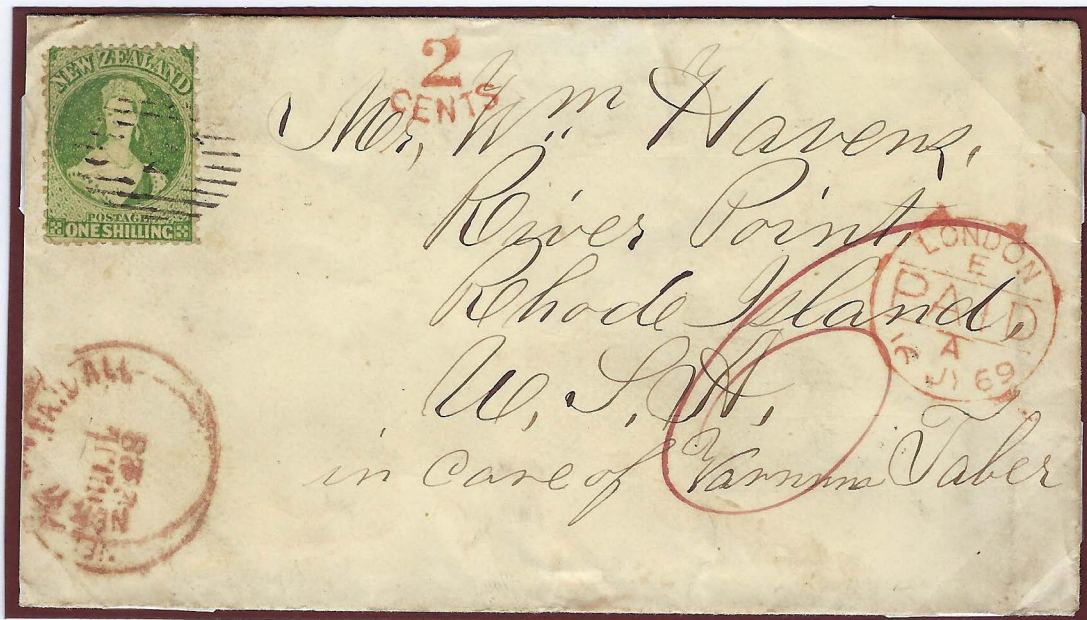 NEW ZEALAND
POSTAGE
ONE SHILLING
2
CENTS
Mr, Wm Havens,
River Point,
Rhode Island,
U. S. A.
in care of Varnum Taber
LONDON
E
PAID
A
JY 69
PAID ALL